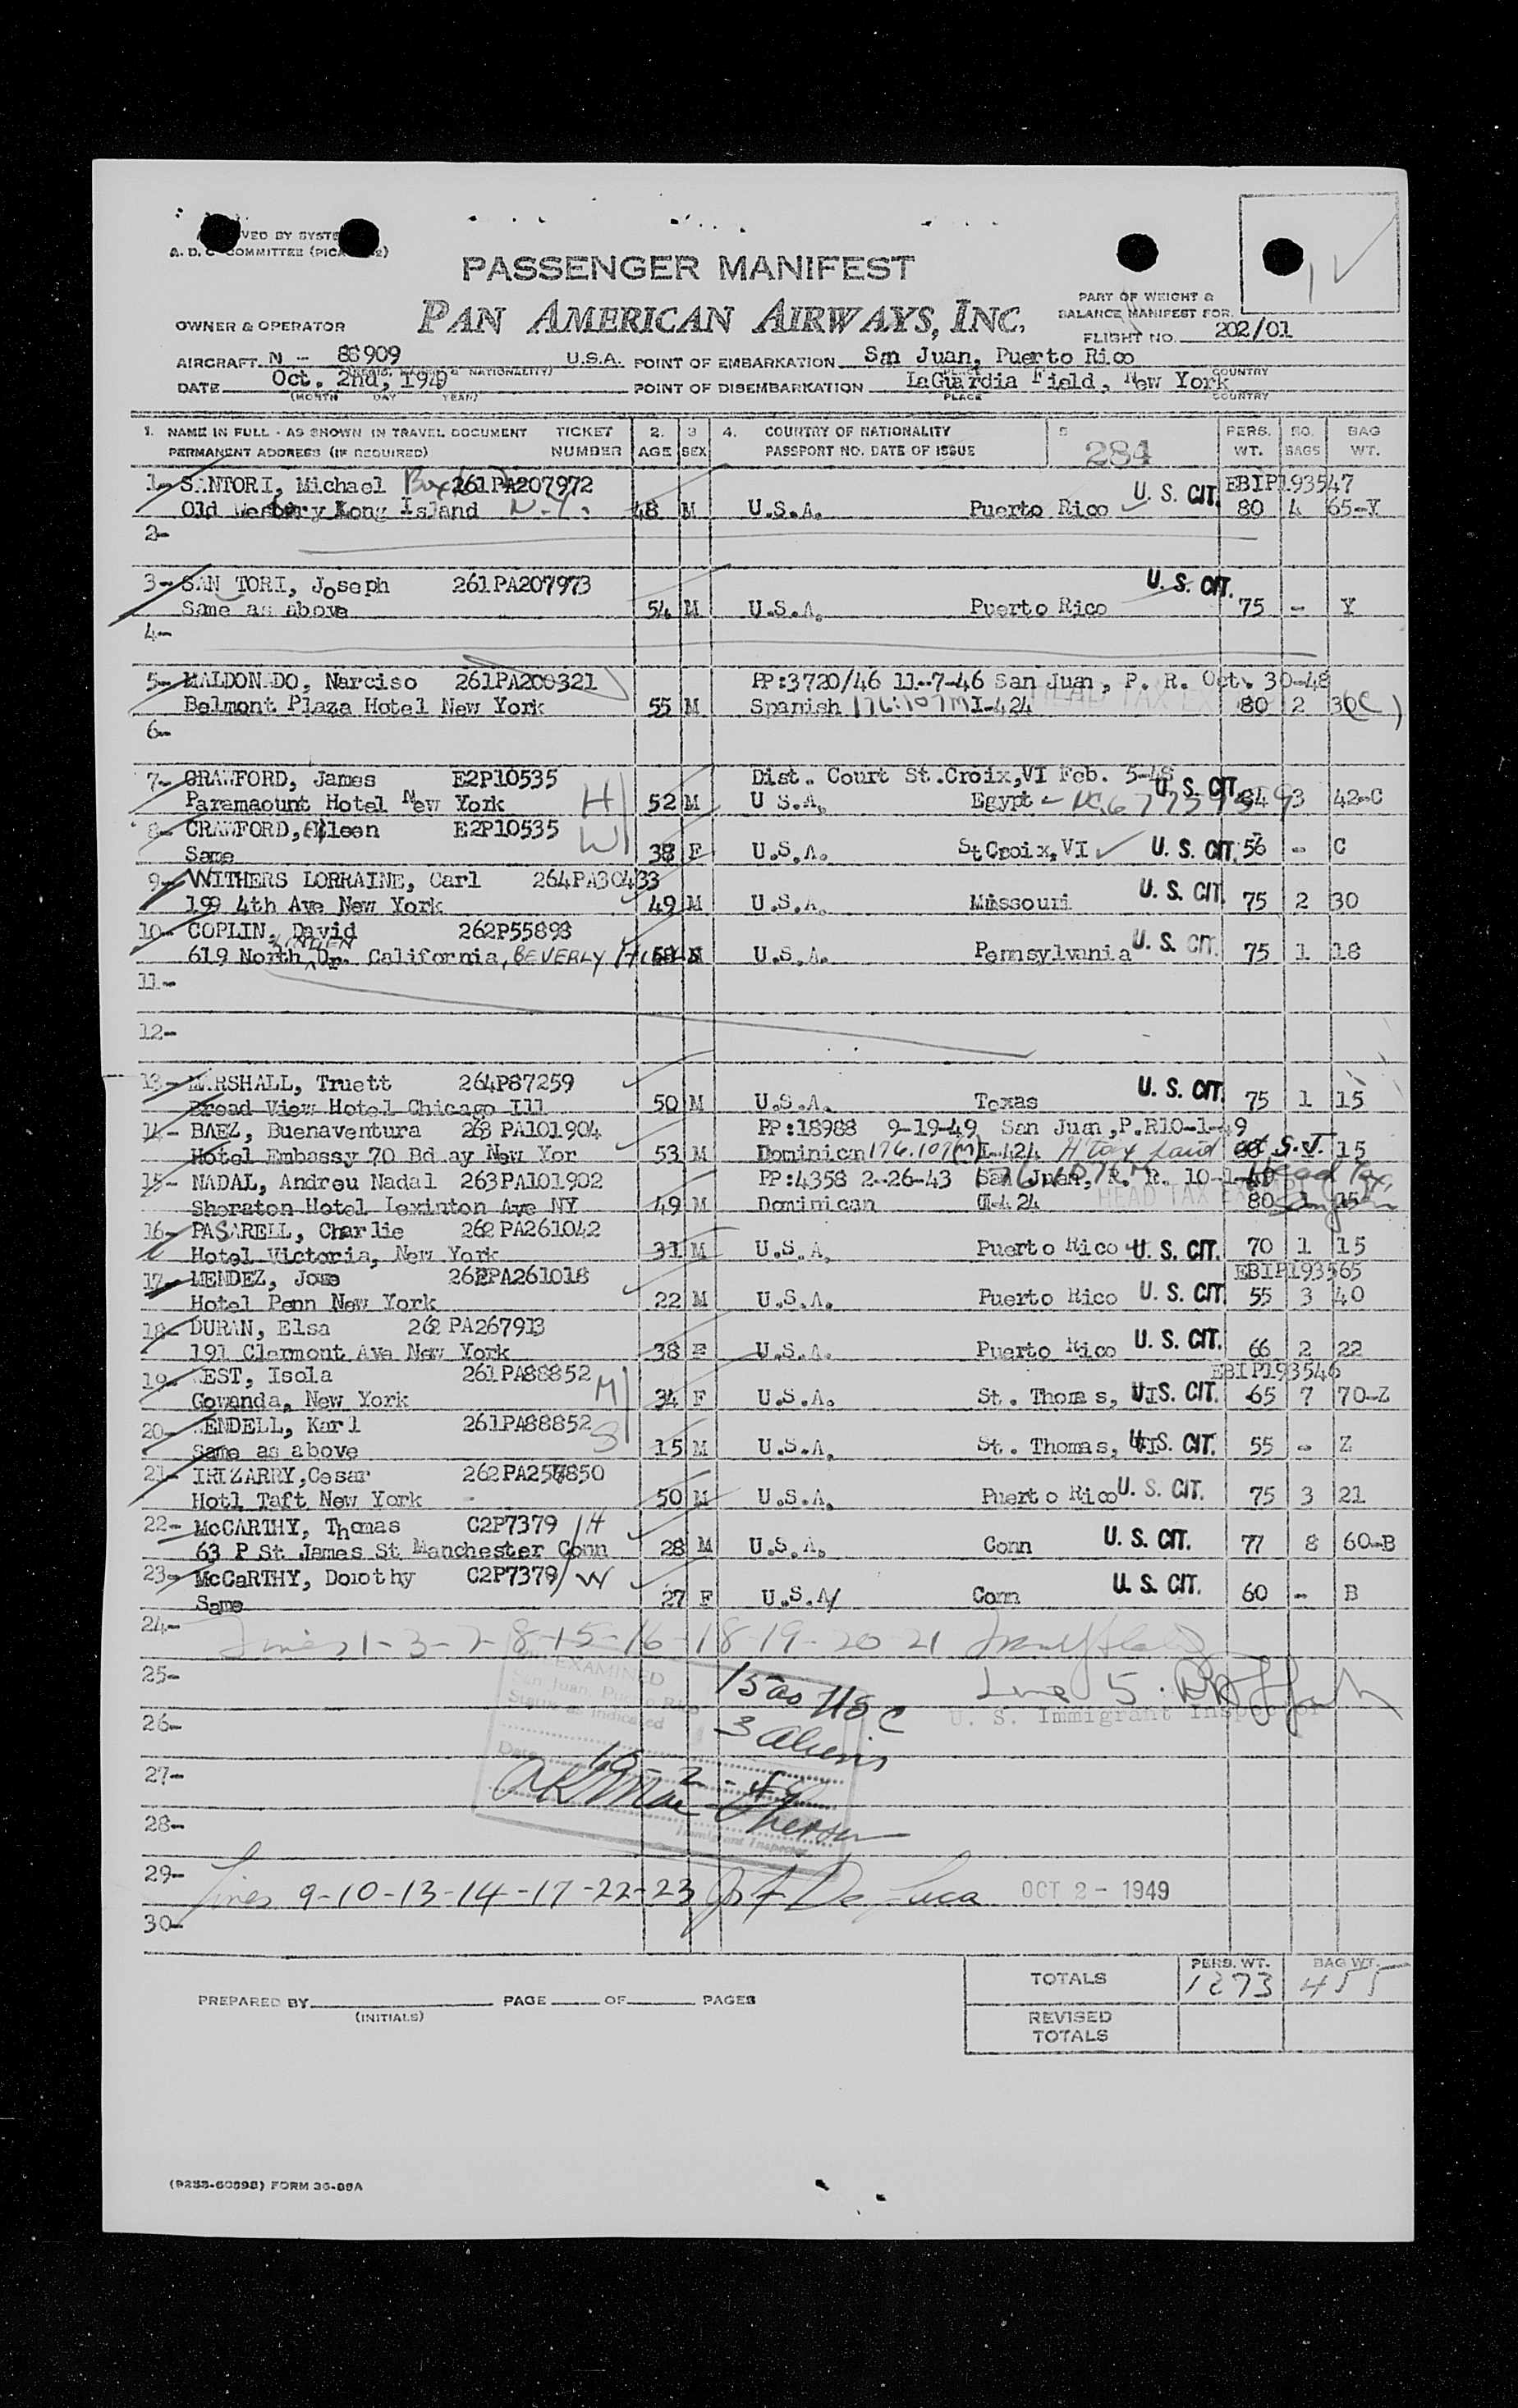 VED BY SYSTE
A. D. C. COMMITTEE (PICA
PASSENGER MANIFEST
PAN AMERICAN AIRWAYS, INC.
PART OF WEIGHT &
BALANCE MANIFEST FOR
OWNER & OPERATOR
FLIGHT NO. 202/01
AIRCRAFT N - 88909 U.S.A. POINT OF EMBARKATION San Juan, Puerto Rico
DATE Oct. 2nd, 1949 POINT OF DISEMBARKATION LaGuardia Field, New York
(MONTH DAY YEAR) PLACE COUNTRY
1. NAME IN FULL - AS SHOWN IN TRAVEL DOCUMENT TICKET 2. 3 4. COUNTRY OF NATIONALITY 5 PERS. NO. BAG
PERMANENT ADDRESS (IF REQUIRED) NUMBER AGE SEX PASSPORT NO. DATE OF ISSUE 284 WT. BAGS WT.
1- SANTORI, Michael 261PA207972 U. S. CIT. EBIP193547
Old Westbury Long Island N.Y. 48 M U.S.A. Puerto Rico 80 4 65-Y
2-
3- SAN TORI, Joseph 261PA207973 U. S. CIT.
Same as above 54 M U.S.A. Puerto Rico 75 - Y
4-
5- MALDONADO, Narciso 261PA200321 PP:3720/46 11-7-46 San Juan, P. R. Oct. 30-48
Belmont Plaza Hotel New York 55 M Spanish 176.107M I-424 80 2 30(C)
6-
7- CRAWFORD, James E2P10535 Dist. Court St.Croix,VI Feb. 5-48
Paramaount Hotel New York H 52 M U S.A. Egypt U. S. CIT. 84 3 42-C
8- CRAWFORD, Aileen E2P10535
Same W 38 F U.S.A. St Croix,VI U. S. CIT. 56 - C
9- WITHERS LORRAINE, Carl 264PA30433
199 4th Ave New York 49 M U.S.A. Missouri U. S. CIT. 75 2 30
10- COPLIN, David 262P55898
619 North LINDEN Dr. California, BEVERLY HILLS 58 M U.S.A. Pennsylvania U. S. CIT. 75 1 18
11-
12-
13- MARSHALL, Truett 264P87259
Broad View Hotel Chicago Ill 50 M U.S.A. Texas U. S. CIT. 75 1 15
14- BAEZ, Buenaventura 263 PA101904 PP:18988 9-19-49 San Juan,P.R10-1-49
Hotel Embassy 70 Bd ay New Yor 53 M Dominican 176.107(M) I-424 H tax paid S.J. 15
15- NADAL, Andreu Nadal 263PA101902 PP:4358 2-26-43 San Juan, P. R. 10-1-49
Sheraton Hotel Lexinton Ave NY 49 M Dominican I-424 HEAD TAX 80 1 15
16- PASARELL, Charlie 262 PA261042
Hotel Victoria, New York 31 M U.S.A. Puerto Rico U. S. CIT. 70 1 15
17- MENDEZ, Jose 262PA261018 EBIP193565
Hotel Penn New York 22 M U.S.A. Puerto Rico U. S. CIT. 55 3 40
18- DURAN, Elsa 262 PA267913
191 Clermont Ave New York 38 F U.S.A. Puerto Rico U. S. CIT. 66 2 22
19- WEST, Isola 261PA88852 EBIP193546
Gowanda, New York M 34 F U.S.A. St. Thomas, VI U. S. CIT. 65 7 70-Z
20- WENDELL, Karl 261PA88852
Same as above S 15 M U.S.A. St. Thomas, VI U. S. CIT. 55 - Z
21- IRIZARRY,Cesar 262PA257850
Hotl Taft New York 50 M U.S.A. Puerto Rico U. S. CIT. 75 3 21
22- McCARTHY, Thomas C2P7379 H
63 P St James St Manchester Conn 28 M U.S.A. Conn U. S. CIT. 77 8 60-B
23- McCaRTHY, Dorothy C2P7379 W
Same 27 F U.S.A/ Conn U. S. CIT. 60 - B
24- Lines 1-3-7-8-15-16-18-19-20-21
25- EXAMINED
San Juan, Puerto Rico
Status as indicated
15 as USC
Line 5.
26- 3 Aliens U. S. Immigrant Inspector
27- Date 10-2-49
28- Immigrant Inspector
29- Lines 9-10-13-14-17-22-23 De Luca OCT 2 - 1949
30-
TOTALS PERS. WT. 1273 BAG WT. 455
PREPARED BY PAGE OF PAGES
(INITIALS)
REVISED
TOTALS
(9253-60898) FORM 36-89A